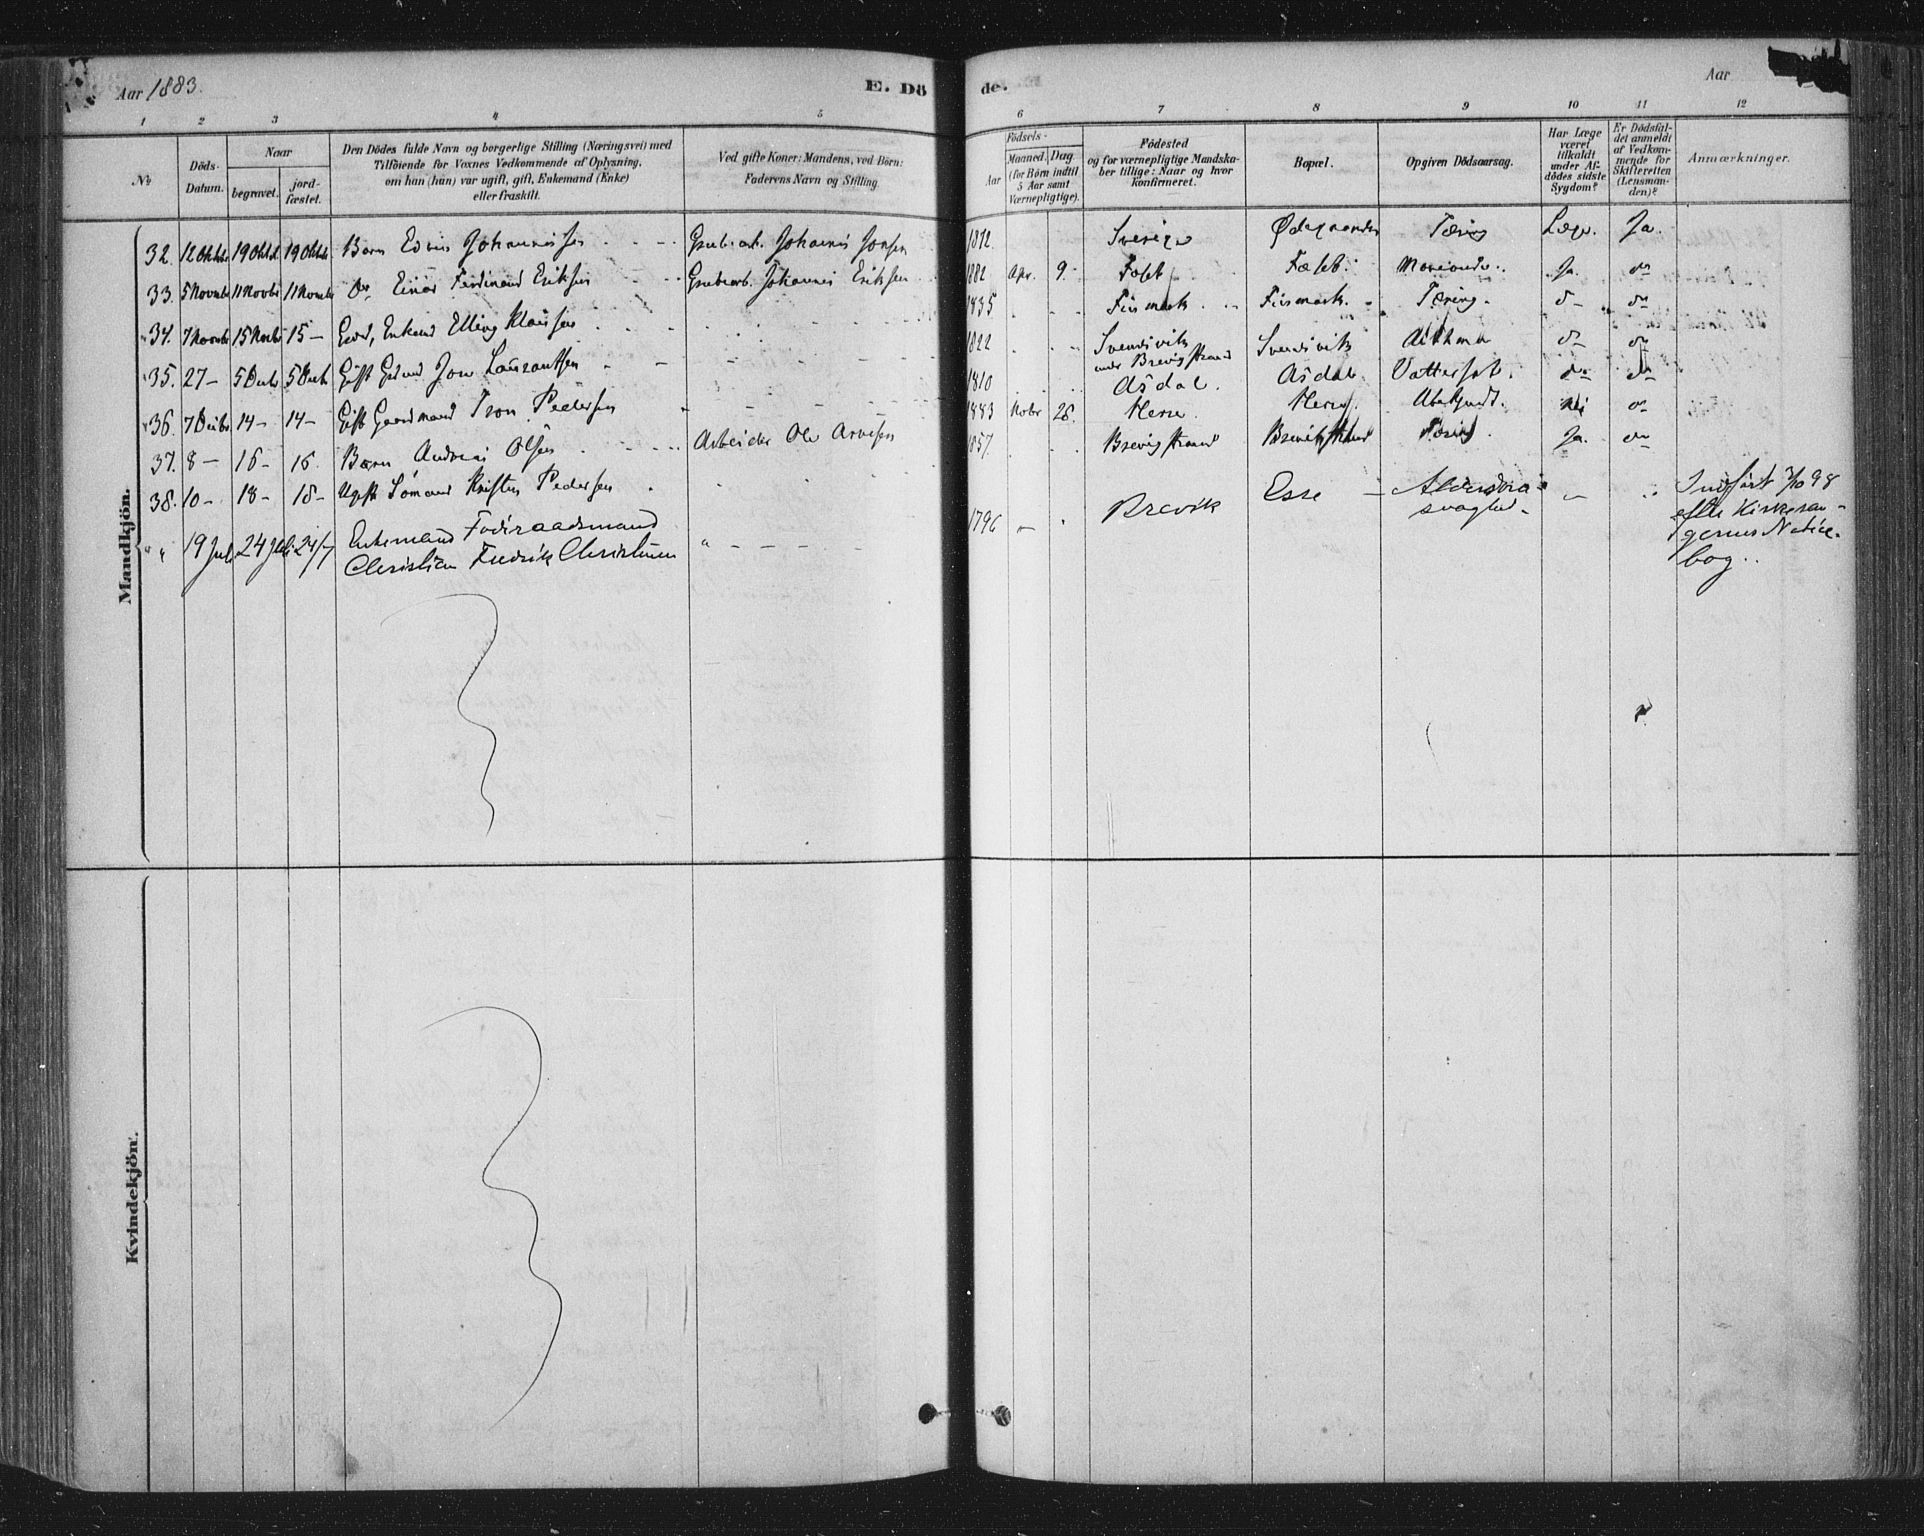 Aar 1883.
E. Dö
de.
Aar
1 2 3 4 5 6 7 8 9 10 11 12
No
Döds-Datum.
Naar
begravet.
jord-fæstet.
Den Dödes fulde Navn og borgerlige Stilling (Næringsvei) med
Tilföiende for Voxnes Vedkommende af Oplysning,
om han (hun) var ugift, gift, Enkemand (Enke)
eller fraskilt.
Ved gifte Koner: Mandens, ved Börn:
Faderens Navn og Stilling.
Födsels-
Aar
Maaned. Dag
(for Börn indtil
5 Aar samt
Værnepligtige).
Födested
og for værnepligtige Mandska-
ber tillige: Naar og hvor
konfirmeret.
Bopæl.
Opgiven Dödsaarsag.
Har Læge
været
tilkaldt
under Af-
dödes sidste
Sygdom?
Er Dödsfal-
det anmeldt
af Vedkom-
mende for
Skifteretten
(Lensman-
den)?
Anmærkninger.
Mandkjön.
32. 12 Oktbr 19 Oktbr 19 Oktbr Barn Edvin Johannissen Grubearb. Johannis Jonsen 1812. Sverige Ødegaarden Tæring Læge. Ja.
33. 5 Novmbr 11 Novbr 11 Novmbr Do Einar Ferdinand Eriksen Grubearb. Johannis Eriksen 1882 Apr. 9. Fosse Ja. do
34. 7 Novmbr 15 Novbr 15 - Enkemd Elling Klausen 1835 Finmark. Finmark. Tæring. do do
35. 27 - 5 Decbr 5 Decbr Gift Jon Laurantsen 1822 Svendsvik under Brevigstrand Svendsvik Asthma do do
36. 7 Decbr 14 - 14 - Gift Gaardmand Tron Pedersen 1810 Asdal. Asdal Vattersot. do do
37. 8 - 16 - 16. Barn Andreas Olsen Arbeider Ole Arvesen 1883 Novbr 26. Herre. Herre. Nei do
38. 10 - 18 - 18 - Ugift Sømand Kristen Pedersen 1857. Brevigstrand Brevikstrand Tæring. Ja. do
" " 19 Juli 24 Juli 24/7 Enkemand Foderaadsmand
Christian Fredrik Christensen " 1796 Brevik Esse Alderdoms
svaghed.
Indført 7/10 98
efter Kirkesan-
gerens Notice-
bog.
Kvindekjön.